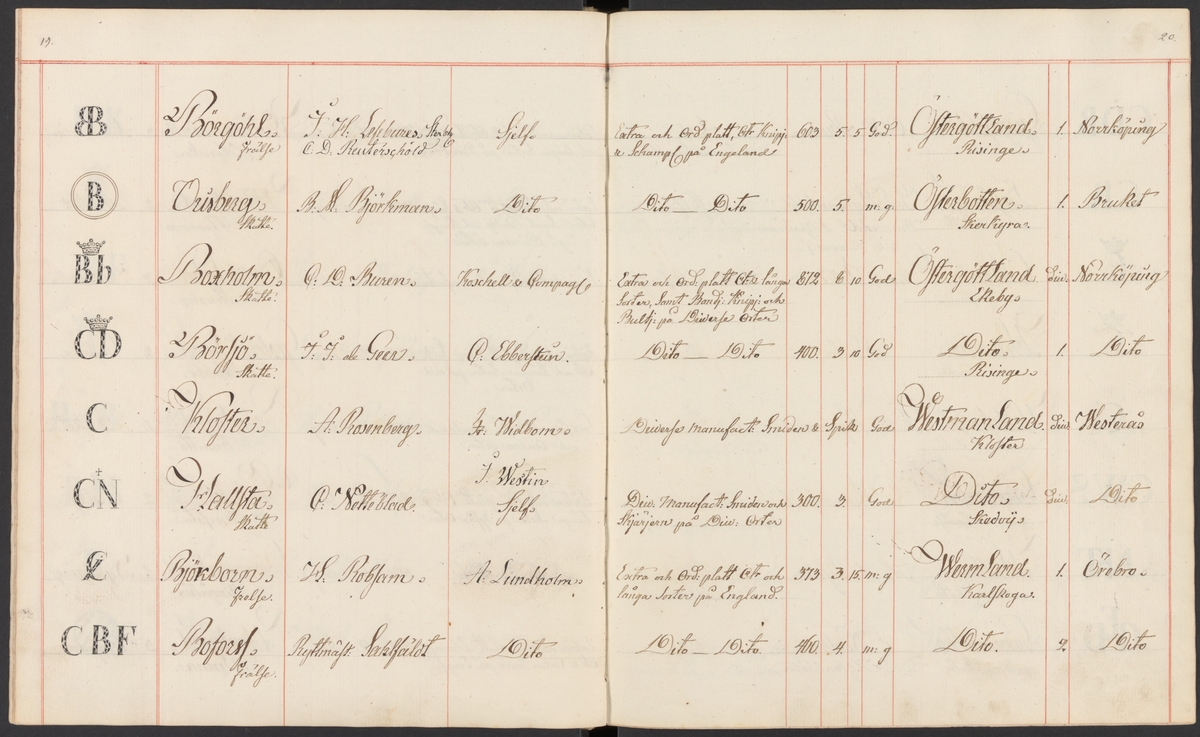 19.
20.
BB Börgöhl. J: H: Lefebures Sterbh Sjelf Extra och Ord platt, Ctr Knipp 603 5 5 God. Östergöttland. 1. Norrköping
Frälse C. D. Reuterschöld & Schampl på Engeland Risinge.
B Orisberg. B. M. Björkman. Dito Dito — Dito 500. 5. m: g Österbotten 1. Bruket
Skatte. Storkyra.
Bb Boxholm. C. D. Buren. Koschell & Compag Extra och Ord: platt Ctr & långa 812 6 10 God Östergöttland Div: Norrköping
Skatte. Sorter, Samt Band: Knipp: och Ekeby.
Bult: på Diverse Orter
CD Börsjö. J: J: de Geer. C: Ebberstein. Dito — Dito 400. 3 10 God Dito. 1. Dito
Skatte. Risinge.
C Kloster. A. Rosenberg. Fr: Widbom. Diverse manufact: Smiden & Spik God Westmanland. Div: Westerås
Kloster
J. Westin
CN Hallsta C: Netteblad. Sjelf. Div. Manufact: Smiden och 300. 3. God Dito. Div. Dito
Skatte Skjärjern på Div: Orter Skedvij.
C Björkborn. H. Robsam. A: Lundholm. Extra och Ord: platt Ctr och 373 3. 15. m: g Wermland. 1. Örebro.
Frelse. långa Sorter på England. Karlskoga.
CBF Bofors. Ryttmäst Dito Dito — Dito. 460. 4. m: g Dito. 2. Dito
Frälse.